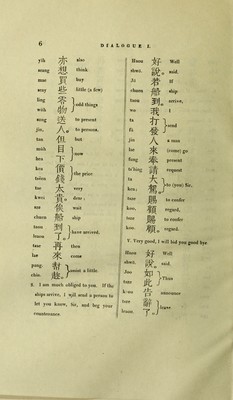 6
DIALOGUE I.
yih 亦 also
seang 想 think
mae 買 buy
seay 些 little (a few)
ling 零
wŭh 物 } odd things
sung 送 to present
jin. 人。 to persons.
tan 但 but
mŭh 目
hea 下 } now
kea 價
tseĕn 錢 } the price
tae 太 very
kwei 貴 dear:
sze 俟 wait
chuen 船 ship
taou 到
leaou 了。 } have arrived.
tsae 再 then
lae 來 come
pang 幫
chin. 趁。 } assist a little.
S. I am much obliged to you. If the
ships arrive, I will send a person to
let you know, Sir, and beg your
countenance
Haou 好 Well
shwŏ. 說。 said.
Jŏ 若 If
chuen 船 ship
taou 到 arrive,
wo 我 I
ta 打
fă 發 } send
jin 人 a man
lae 來 (come) go
fung 奉 present
ts'hing 請 request
ta 大
kea. 駕。 } to (you) Sir,
tsze 賜 to confer
koo. 顧 regard,
tsze 賜 to confer
koo. 顧。 regard.
Y. Very good, I will bid you good bye
Haou 好 Well
shwŏ. 說。 said.
Joo 如
tsze 此 } Thus
kaou 告 announce
tsze 辭
leaou. 了。 } leave